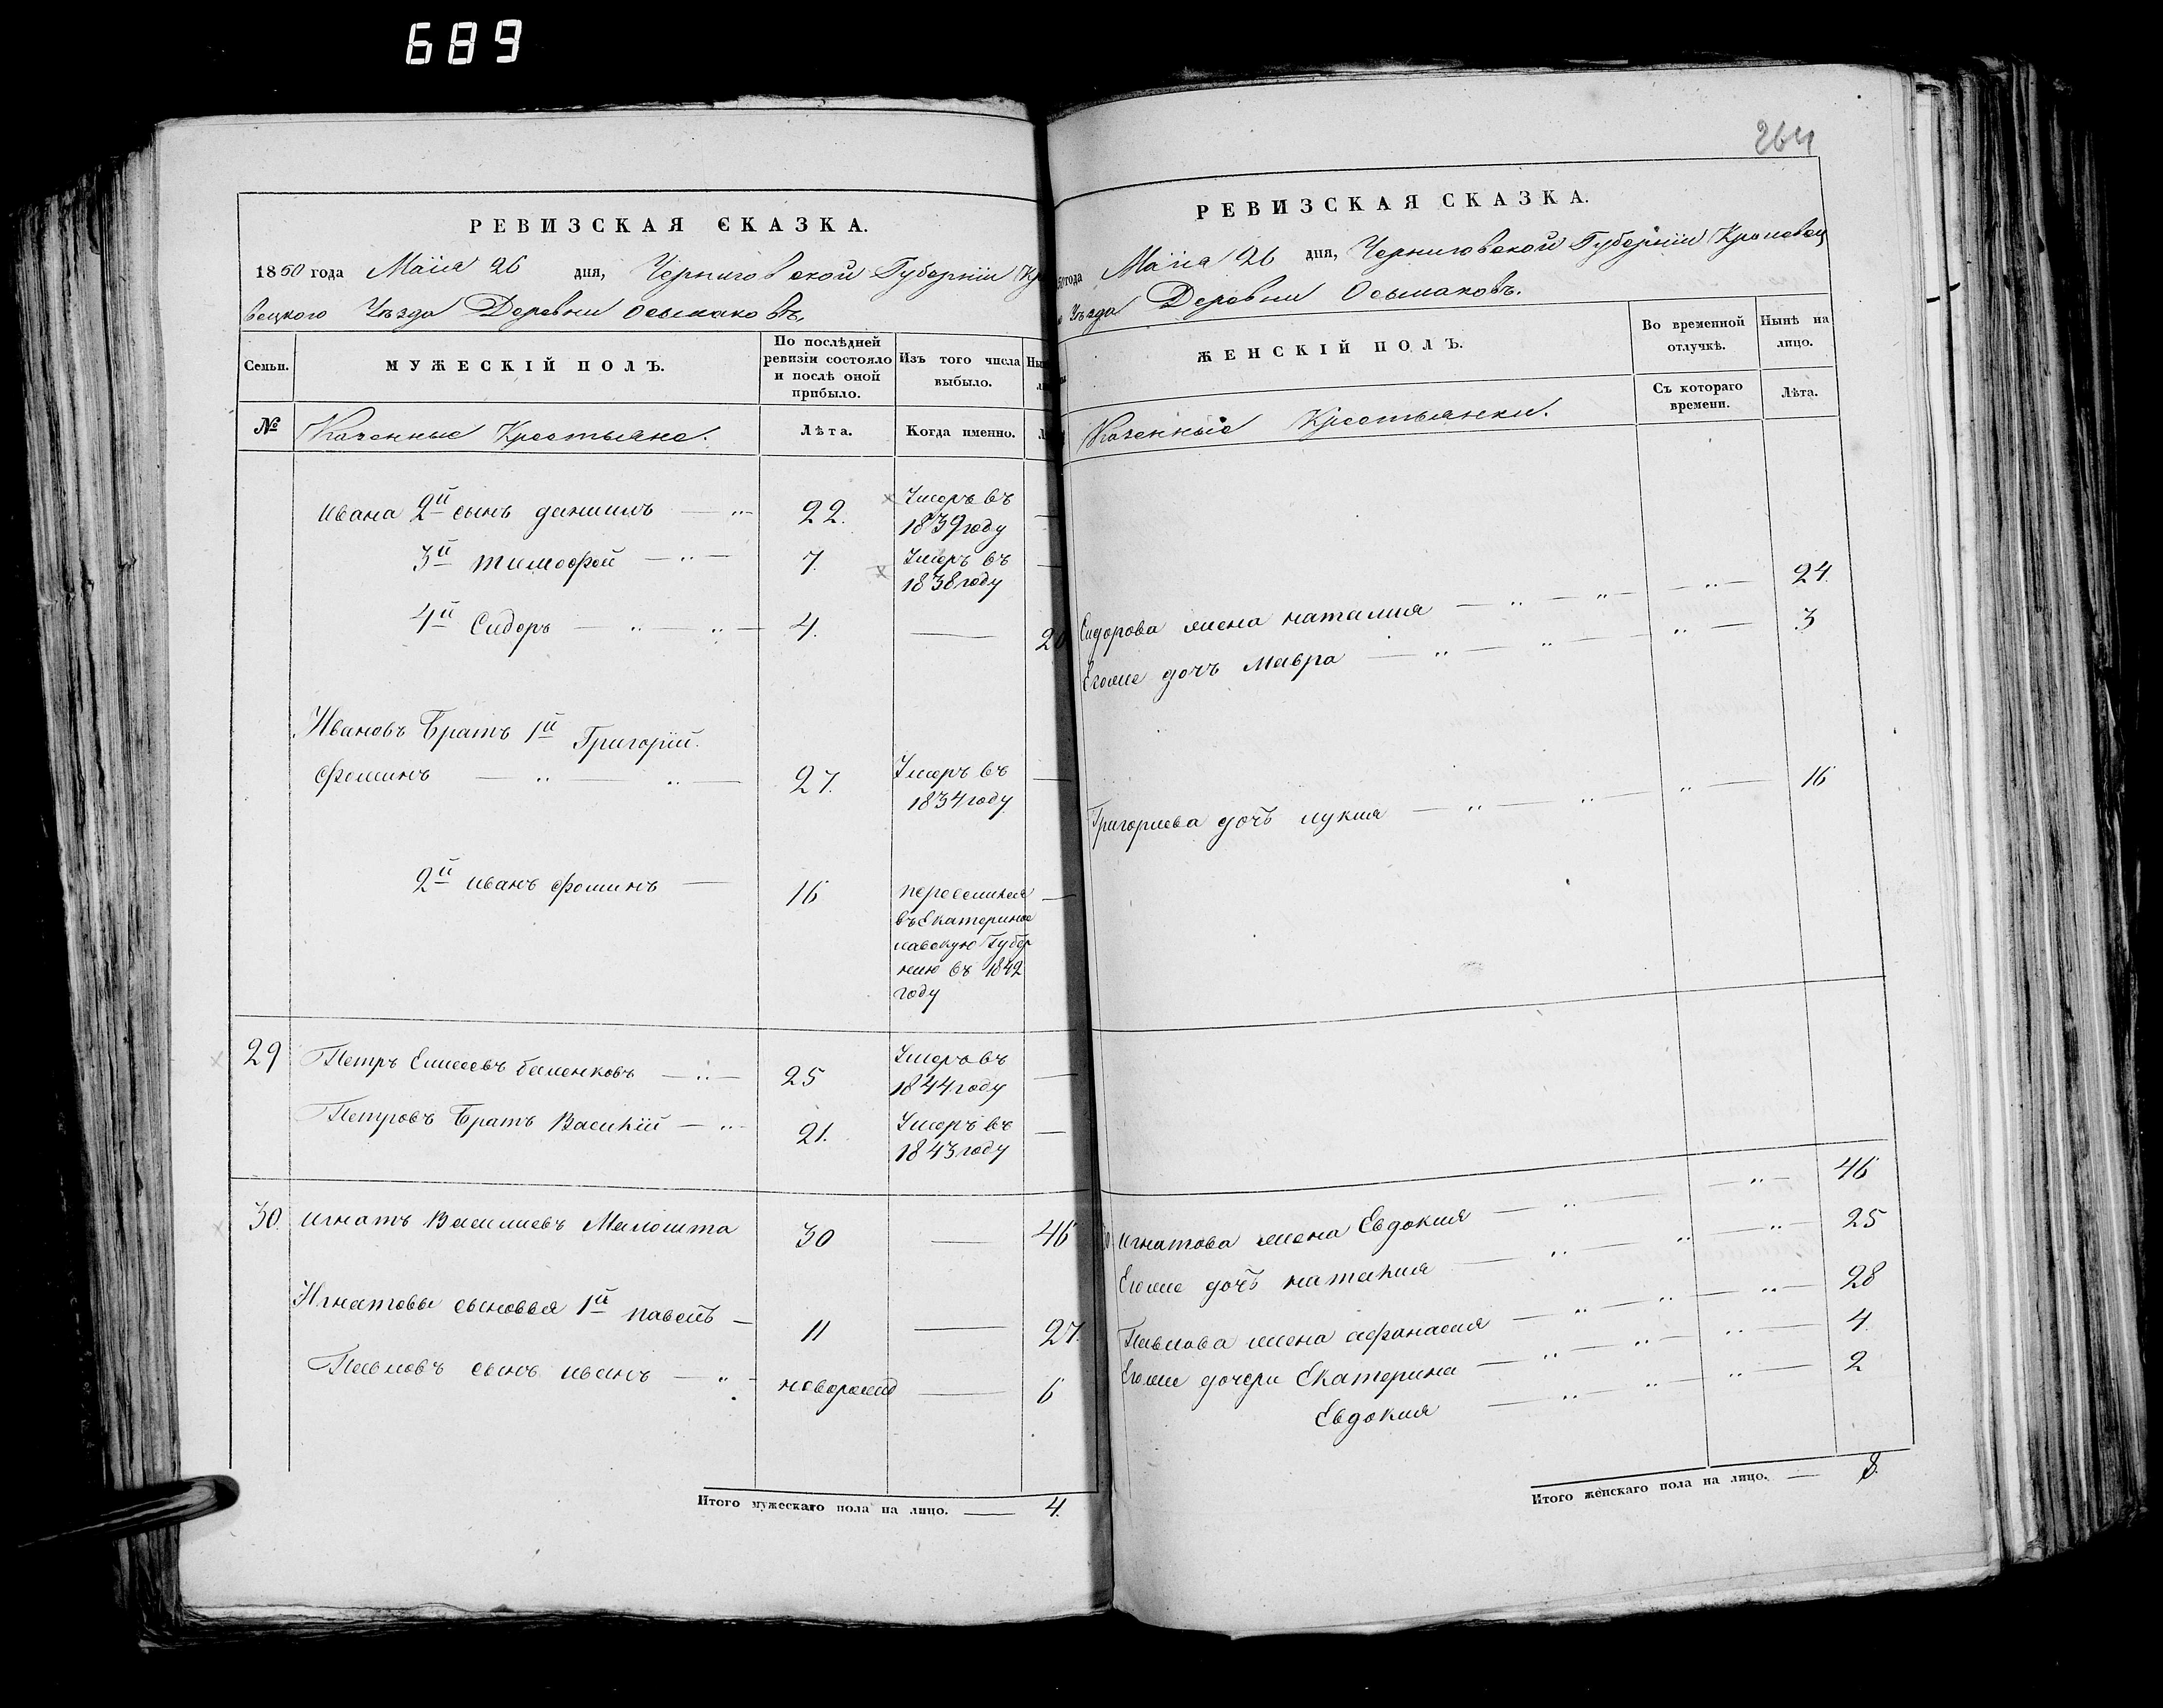 689
264
РЕВИЗСКАЯ СКАЗКА.
1850 года Маія 26 дня, Черниговской Губерніи Кро
вецкого Уѣзда Деревни Осьмаковъ.
Семьи.
МУЖЕСКІЙ ПОЛЪ.
По послѣдней
ревизіи состояло
и послѣ оной
прибыло.
Изъ того числа
выбыло.
№
Казенные Крестьяне.
Лѣта.
Когда именно.
Ивана 2й сынъ даниилъ 22. Умеръ въ
1839 году
3й тимофей 7. Умеръ въ
1838 году
4й Сидоръ 4. 20
Ивановъ Братъ 1й Григорій
Фоминъ 27. Умеръ въ
1834 году
2й иванъ Фоминъ 16 переселился
въ Екатеринос
лавскую Губер
нию въ 1842
году
29 Петръ Елисеевъ 25 Умеръ въ
1844 году
Петровъ Братъ Василій 21. Умеръ въ
1843 году
30. игнатъ Василиевъ Малошта 30 46
Игнатовы сыновья 1й павелъ 11 27.
Павловъ сынъ иванъ новорожд 6
Итого мужескаго пола на лицо. 4.
РЕВИЗСКАЯ СКАЗКА.
50 года Маія 26 дня, Черниговской Губерніи Кролевец
Уѣзда Деревни Осьмаковъ.
ЖЕНСКІЙ ПОЛЪ.
Во временной
отлучкѣ.
Нынѣ на
лицо.
Съ котораго
времени.
Лѣта.
Казенные Крестьянки.
Сидорова жена наталия 24.
Егоже дочъ Мавра 3
Григориева дочъ лукия 16
игнатова жена Евдокия 46
Егоже дочъ наталия 25
Павлова жена афанасия 28
Егоже дочери Екатерина 4.
Евдокия 2
Итого женскаго пола на лицо. 8.